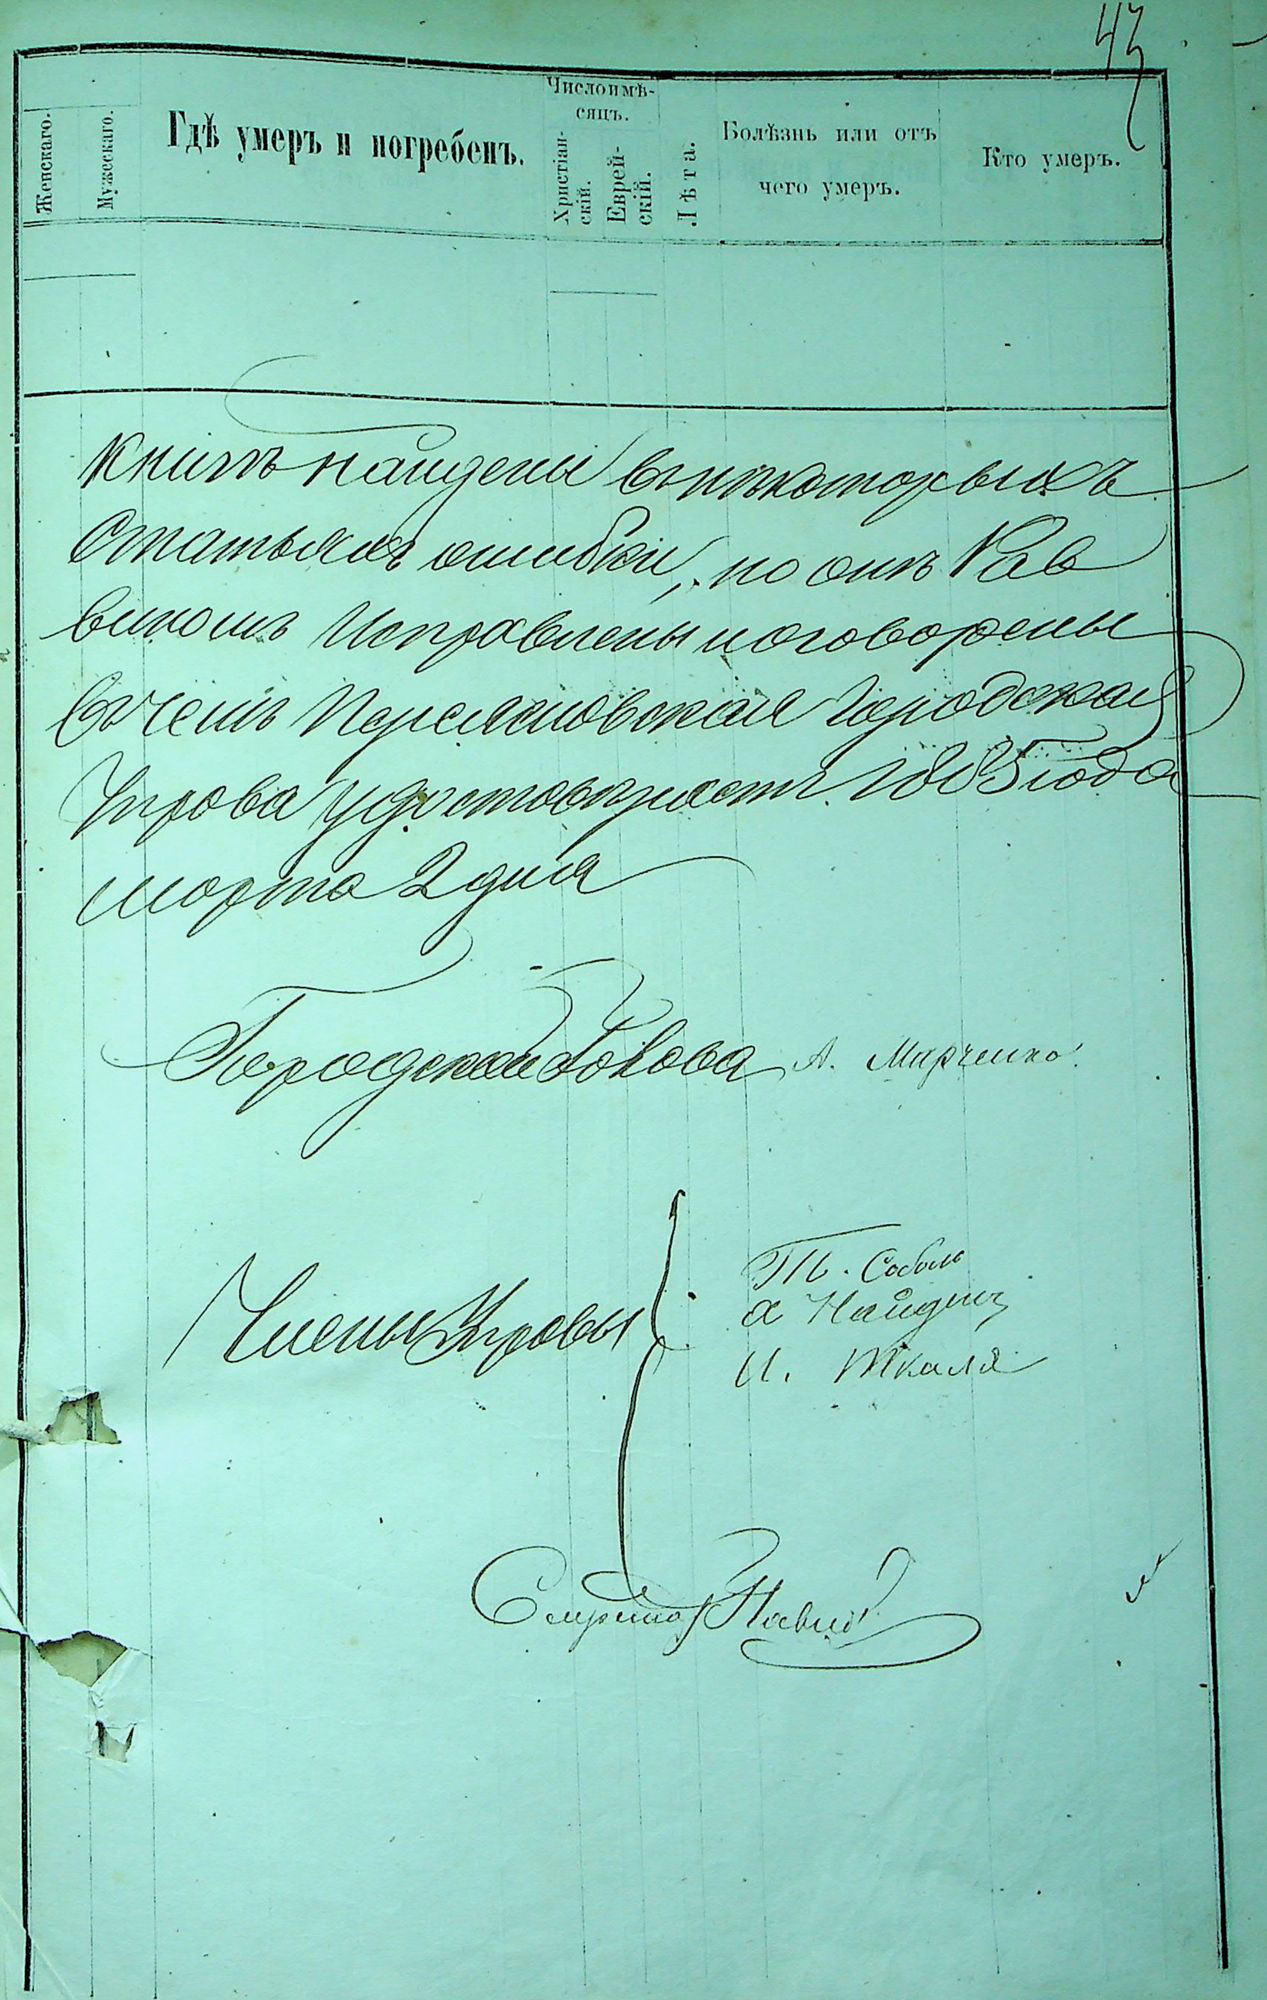 43
Женскаго.
Мужескаго.
Гдѣ умеръ и погребенъ.
Число и мѣ-
сяцъ.
Христіан-
скій.
Еврей-
скій.
Лѣта.
Болѣзнь или отъ
чего умеръ.
Кто умеръ.
книгѣ найдены въ нѣкоторыхъ
статьяхъ ошибки, но онѣ Рав
виномъ исправлены и оговорены
въ чемъ Переяславская Городская
Управа удостовѣряетъ 1885 года
марта 2 дня
Городской Голова А. Марченко
Члены Управы
Соболь
Найдин
И. Ткаля
Секретарь